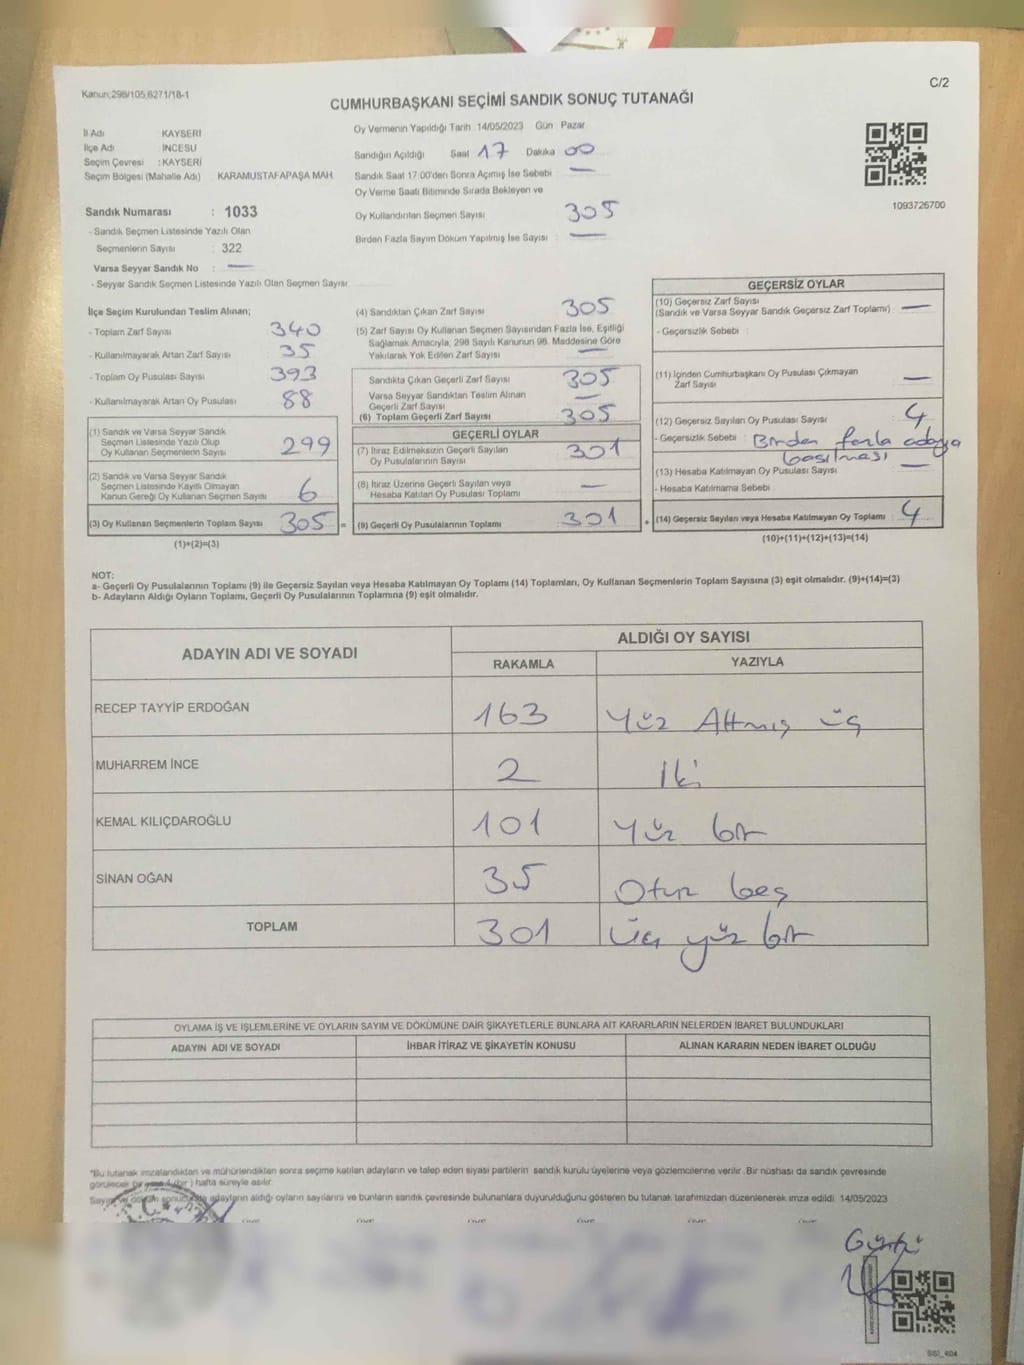 Kanun:298/105,6271/18-1
C/2
CUMHURBAŞKANI SEÇİMİ SANDIK SONUÇ TUTANAĞI
İl Adı KAYSERİ
İlçe Adı İNCESU
Seçim Çevresi : KAYSERİ
Seçim Bölgesi (Mahalle Adı) KARAMUSTAFAPAŞA MAH.
Sandık Numarası : 1033
- Sandık Seçmen Listesinde Yazılı Olan
Seçmenlerin Sayısı : 322
Varsa Seyyar Sandık No : —
- Seyyar Sandık Seçmen Listesinde Yazılı Olan Seçmen Sayısı
Oy Vermenin Yapıldığı Tarih :14/05/2023 Gün Pazar
Sandığın Açıldığı Saat 17 Dakika 00
Sandık Saat 17:00'den Sonra Açımış İse Sebebi —
Oy Verme Saati Bitiminde Sırada Bekleyen ve
Oy Kullandırılan Seçmen Sayısı 305
Birden Fazla Sayım Döküm Yapılmış İse Sayısı : —
1093726700
İlçe Seçim Kurulundan Teslim Alınan;
- Toplam Zarf Sayısı 340
- Kullanılmayarak Artan Zarf Sayısı 35
- Toplam Oy Pusulası Sayısı 393
- Kullanılmayarak Artan Oy Pusulası 88
(1) Sandık ve Varsa Seyyar Sandık
Seçmen Listesinde Yazılı Olup
Oy Kullanan Seçmenlerin Sayısı 299
(2) Sandık ve Varsa Seyyar Sandık
Seçmen Listesinde Kayıtlı Olmayan
Kanun Gereği Oy Kullanan Seçmen Sayısı 6
(3) Oy Kullanan Seçmenlerin Toplam Sayısı 305 =
(1)+(2)=(3)
(4) Sandıktan Çıkan Zarf Sayısı 305
(5) Zarf Sayısı Oy Kullanan Seçmen Sayısından Fazla İse, Eşitliği
Sağlamak Amacıyla, 298 Sayılı Kanunun 98. Maddesine Göre
Yakılarak Yok Edilen Zarf Sayısı —
Sandıkta Çıkan Geçerli Zarf Sayısı 305
Varsa Seyyar Sandıktan Teslim Alınan
Geçerli Zarf Sayısı —
(6) Toplam Geçerli Zarf Sayısı 305
GEÇERLİ OYLAR
(7) İtiraz Edilmeksizin Geçerli Sayılan
Oy Pusulalarının Sayısı 301
(8) İtiraz Üzerine Geçerli Sayılan veya
Hesaba Katılan Oy Pusulası Toplamı —
(9) Geçerli Oy Pusulalarının Toplamı 301 +
GEÇERSİZ OYLAR
(10) Geçersiz Zarf Sayısı
(Sandık ve Varsa Seyyar Sandık Geçersiz Zarf Toplamı) : —
- Geçersizlik Sebebi :
(11) İçinden Cumhurbaşkanı Oy Pusulası Çıkmayan
Zarf Sayısı —
(12) Geçersiz Sayılan Oy Pusulası Sayısı : 4
- Geçersizlik Sebebi : Birden fazla adaya
basılması
(13) Hesaba Katılmayan Oy Pusulası Sayısı —
- Hesaba Katılmama Sebebi :
(14) Geçersiz Sayılan veya Hesaba Katılmayan Oy Toplamı : 4
(10)+(11)+(12)+(13)=(14)
NOT:
a- Geçerli Oy Pusulalarının Toplamı (9) ile Geçersiz Sayılan veya Hesaba Katılmayan Oy Toplamı (14) Toplamları, Oy Kullanan Seçmenlerin Toplam Sayısına (3) eşit olmalıdır. (9)+(14)=(3)
b- Adayların Aldığı Oyların Toplamı, Geçerli Oy Pusulalarının Toplamına (9) eşit olmalıdır.
ADAYIN ADI VE SOYADI
ALDIĞI OY SAYISI
RAKAMLA YAZIYLA
RECEP TAYYİP ERDOĞAN 163 Yüz Altmış üç
MUHARREM İNCE 2 İki
KEMAL KILIÇDAROĞLU 101 Yüz bir
SİNAN OĞAN 35 Otuz beş
TOPLAM 301 Üç yüz bir
OYLAMA İŞ VE İŞLEMLERİNE VE OYLARIN SAYIM VE DÖKÜMÜNE DAİR ŞİKAYETLERLE BUNLARA AİT KARARLARIN NELERDEN İBARET BULUNDUKLARI
ADAYIN ADI VE SOYADI İHBAR İTİRAZ VE ŞİKAYETİN KONUSU ALINAN KARARIN NEDEN İBARET OLDUĞU
*Bu tutanak imzalandıktan ve mühürlendikten sonra seçime katılan adayların ve talep eden siyasi partilerin sandık kurulu üyelerine veya gözlemcilerine verilir. Bir nüshası da sandık çevresinde
görülecek bir yere 1 (bir) hafta süreyle asılır.
Sayım ve döküm sonucunda adayların aldığı oyların sayılarını ve bunların sandık çevresinde bulunanlara duyurulduğunu gösteren bu tutanak tarafımızdan düzenlenerek imza edildi. 14/05/2023
T.C.